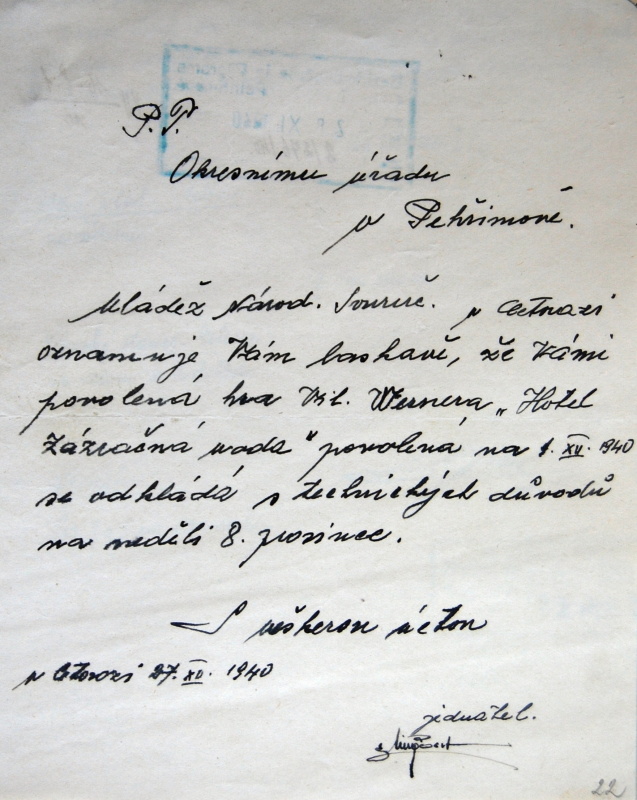 P.T.
Okresnímu úřadu
v Pelhřimově.
Mládež Národ. Souruč. v Cetorazi
oznamuje Vám laskavě, že Vámi
povolená hra Vil. Wernera „Hotel
Zázračná voda" povolená na 1. XII. 1940
se odkládá s technických důvodů
na neděli 8. prosince.
S veškerou úctou
v Cetorazi 27. XI. 1940
jednatel.
22